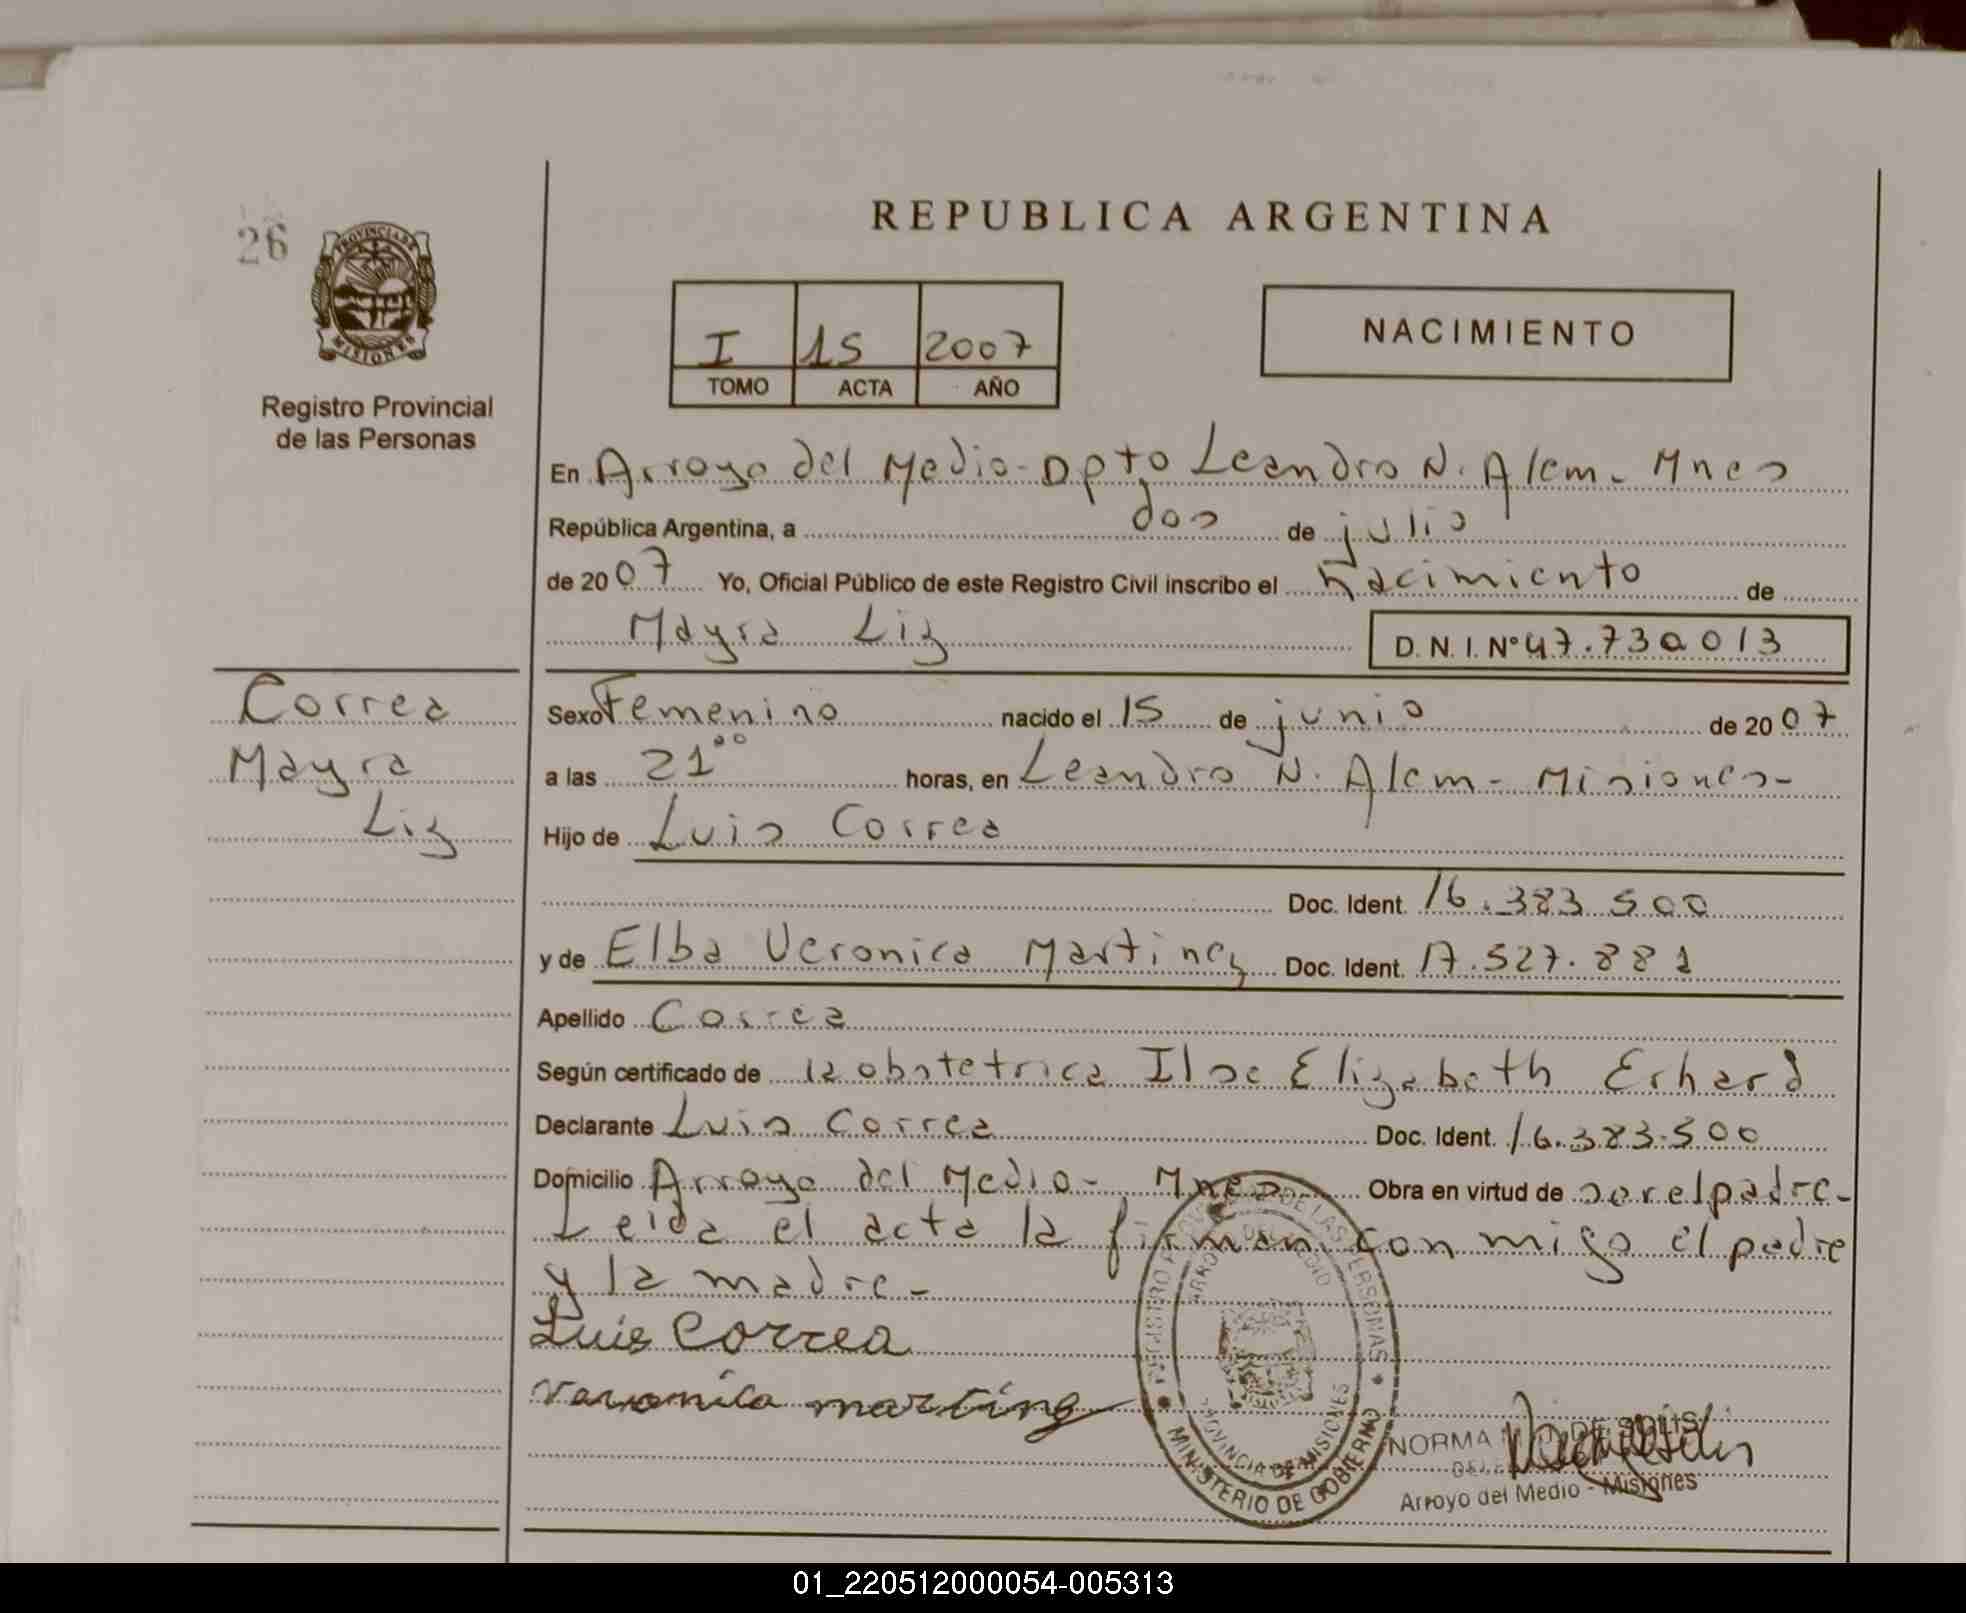 26
PROVINCIA DE
MISIONES
Registro Provincial
de las Personas
REPUBLICA ARGENTINA
I 15 2007
TOMO ACTA AÑO
NACIMIENTO
En Arroyo del Medio - Dpto Leandro N. Alem - Mnes
República Argentina, a dos de julio
de 2007 Yo, Oficial Público de este Registro Civil inscribo el nacimiento de
Mayra Liz D. N. I. N° 47.730013
Correa
Mayra
Liz
Sexo Femenino nacido el 15 de junio de 2007
a las 21°° horas, en Leandro N. Alem - Misiones -
Hijo de Luis Correa
Doc. Ident. 16.383 500
y de Elba Veronica Martinez Doc. Ident. 17.527.881
Apellido Correa
Según certificado de la obstetrica Ilse Elizabeth Erhard
Declarante Luis Correa Doc. Ident. 16.383.500
Domicilio Arroyo del Medio - Mnes Obra en virtud de ser el padre -
Leida el acta la firman con migo el padre
y la madre -
Luis Correa
Veronica martinez
MINISTERIO DE GOBIERNO
PROVINCIA DE MISIONES
NORMA
Arroyo del Medio - Misiones
01_220512000054-005313